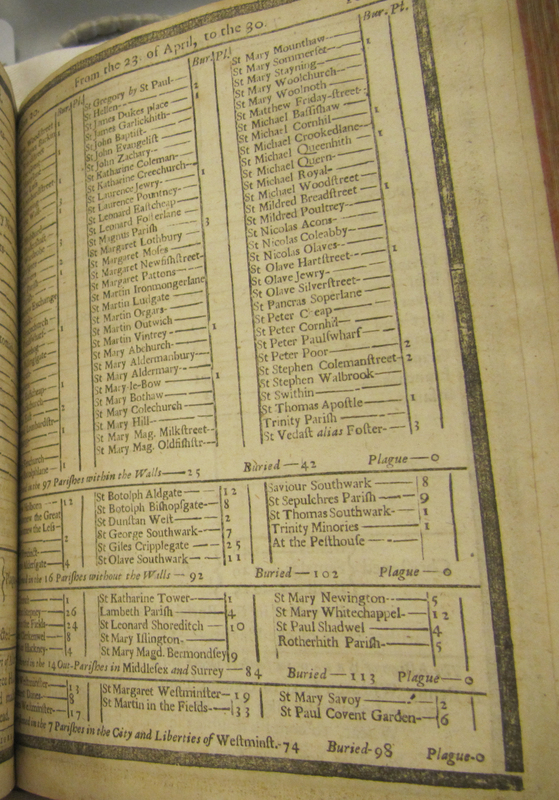 From the 23. of April, to the 30.
Bur. Pl.
St Gregory by St Paul 2
St Hellen
St James Dukes place
St James Garlickhith
St John Baptist
St John Evangelist
St John Zachary
St Katharine Coleman
St Katharine Creechurch
St Laurence Jewry 1
St Laurence Pountney
St Leonard Eastcheap
St Leonard Fosterlane
St Magnus Parish 3
St Margaret Lothbury
St Margaret Moses
St Margaret Newfishstreet
St Margaret Pattons
St Martin Ironmongerlane
St Martin Ludgate
St Martin Orgars
St Martin Outwich
St Martin Vintrey 1
St Mary Abchurch
St Mary Aldermanbury
St Mary Aldermary
St Mary-le-Bow 1
St Mary Bothaw
St Mary Colechurch
St Mary Hill
St Mary Mag. Milkstreet
St Mary Mag. Oldfishstr
Bur. Pl.
St Mary Mounthaw
St Mary Sommerset 1
St Mary Stayning
St Mary Woolchurch
St Mary Woolnoth
St Matthew Friday-street
St Michael Bassishaw 1
St Michael Cornhil
St Michael Crookedlane 1
St Michael Queenhith
St Michael Quern
St Michael Royal
St Michael Woodstreet
St Mildred Breadstreet 1
St Mildred Poultrey
St Nicolas Acons
St Nicolas Coleabby
St Nicolas Olaves
St Olave Hartstreet 1
St Olave Jewry
St Olave Silverstreet
St Pancras Soperlane
St Peter Cheap
St Peter Cornhil
St Peter Paulswharf
St Peter Poor 2
St Stephen Colemanstreet 2
St Stephen Walbrook
St Swithin
St Thomas Apostle 1
Trinity Parish
St Vedast alias Foster 3
in the 97 Parishes within the Walls—25 Buried—42 Plague—0
St Botolph Aldgate 12
St Botolph Bishopsgate 8
St Dunstan West 2
St George Southwark 7
St Giles Cripplegate 25
St Olave Southwark 11
Saviour Southwark 8
St Sepulchres Parish 9
St Thomas Southwark 1
Trinity Minories 1
At the Pesthouse
in the 16 Parishes without the Walls—92 Buried—102 Plague—0
St Katharine Tower 1
Lambeth Parish 4
St Leonard Shoreditch 10
St Mary Islington
St Mary Magd. Bermondsey 9
St Mary Newington 5
St Mary Whitechappel 12
St Paul Shadwel 4
Rotherhith Parish 5
in the 14 Out-Parishes in Middlesex and Surrey—84 Buried—113 Plague—0
St Margaret Westminster—19
St Martin in the Fields—33
St Mary Savoy 2
St Paul Covent Garden 6
in the 7 Parishes in the City and Liberties of Westminst.-74 Buried-98 Plague-0